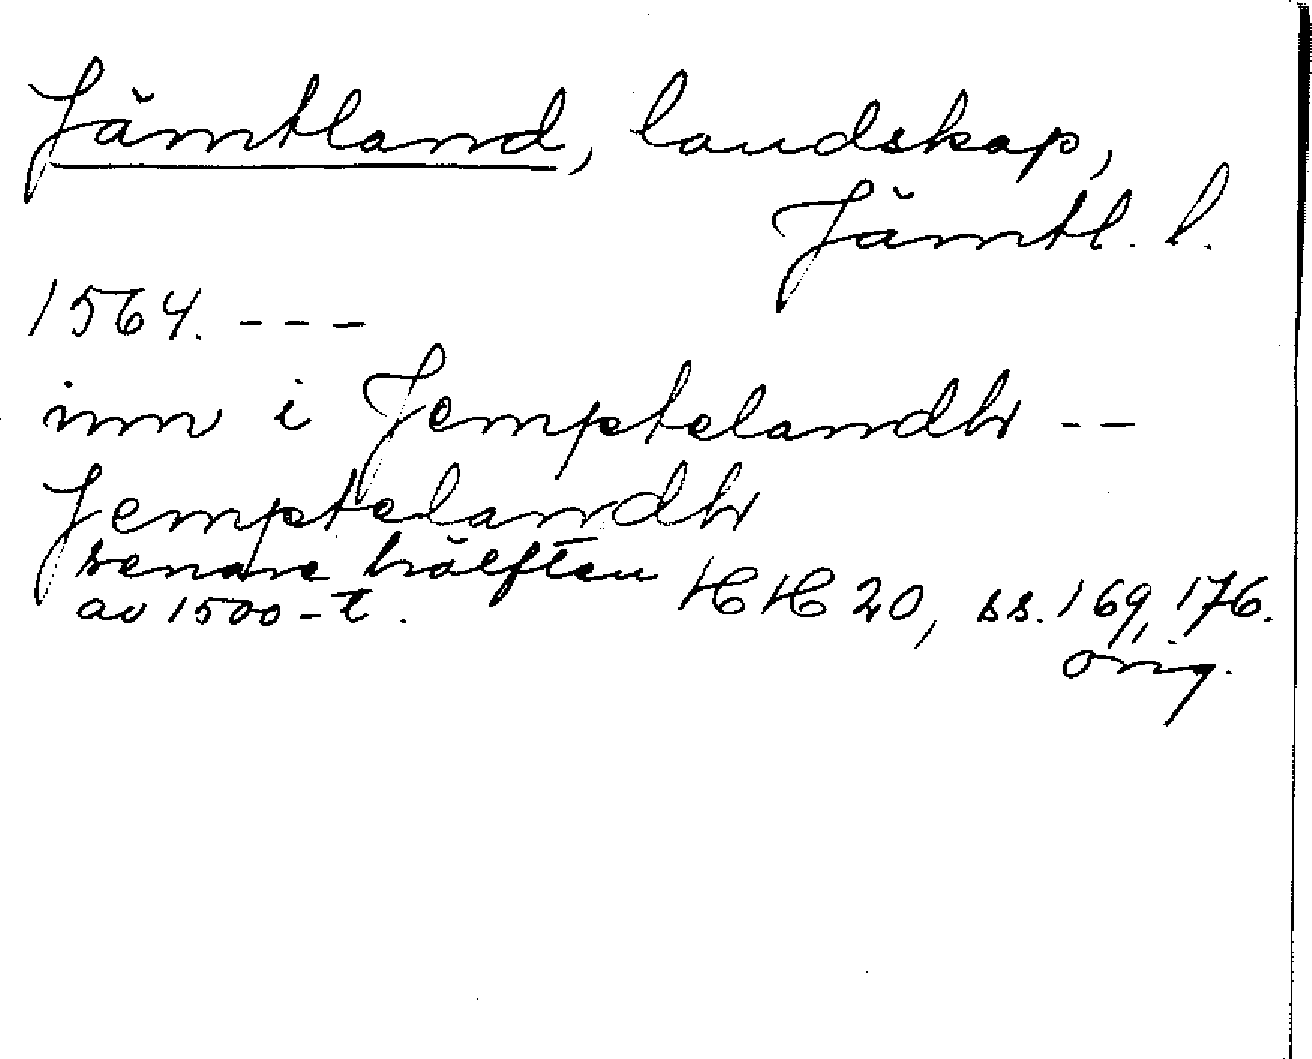 Jämtland, landskap,
Jämtl. l.
1564. ---
inn i Jemptelandh --
Jemptelandh
senare hälften
av 1500-t.
HH 20, ss. 169, 176.
orig.